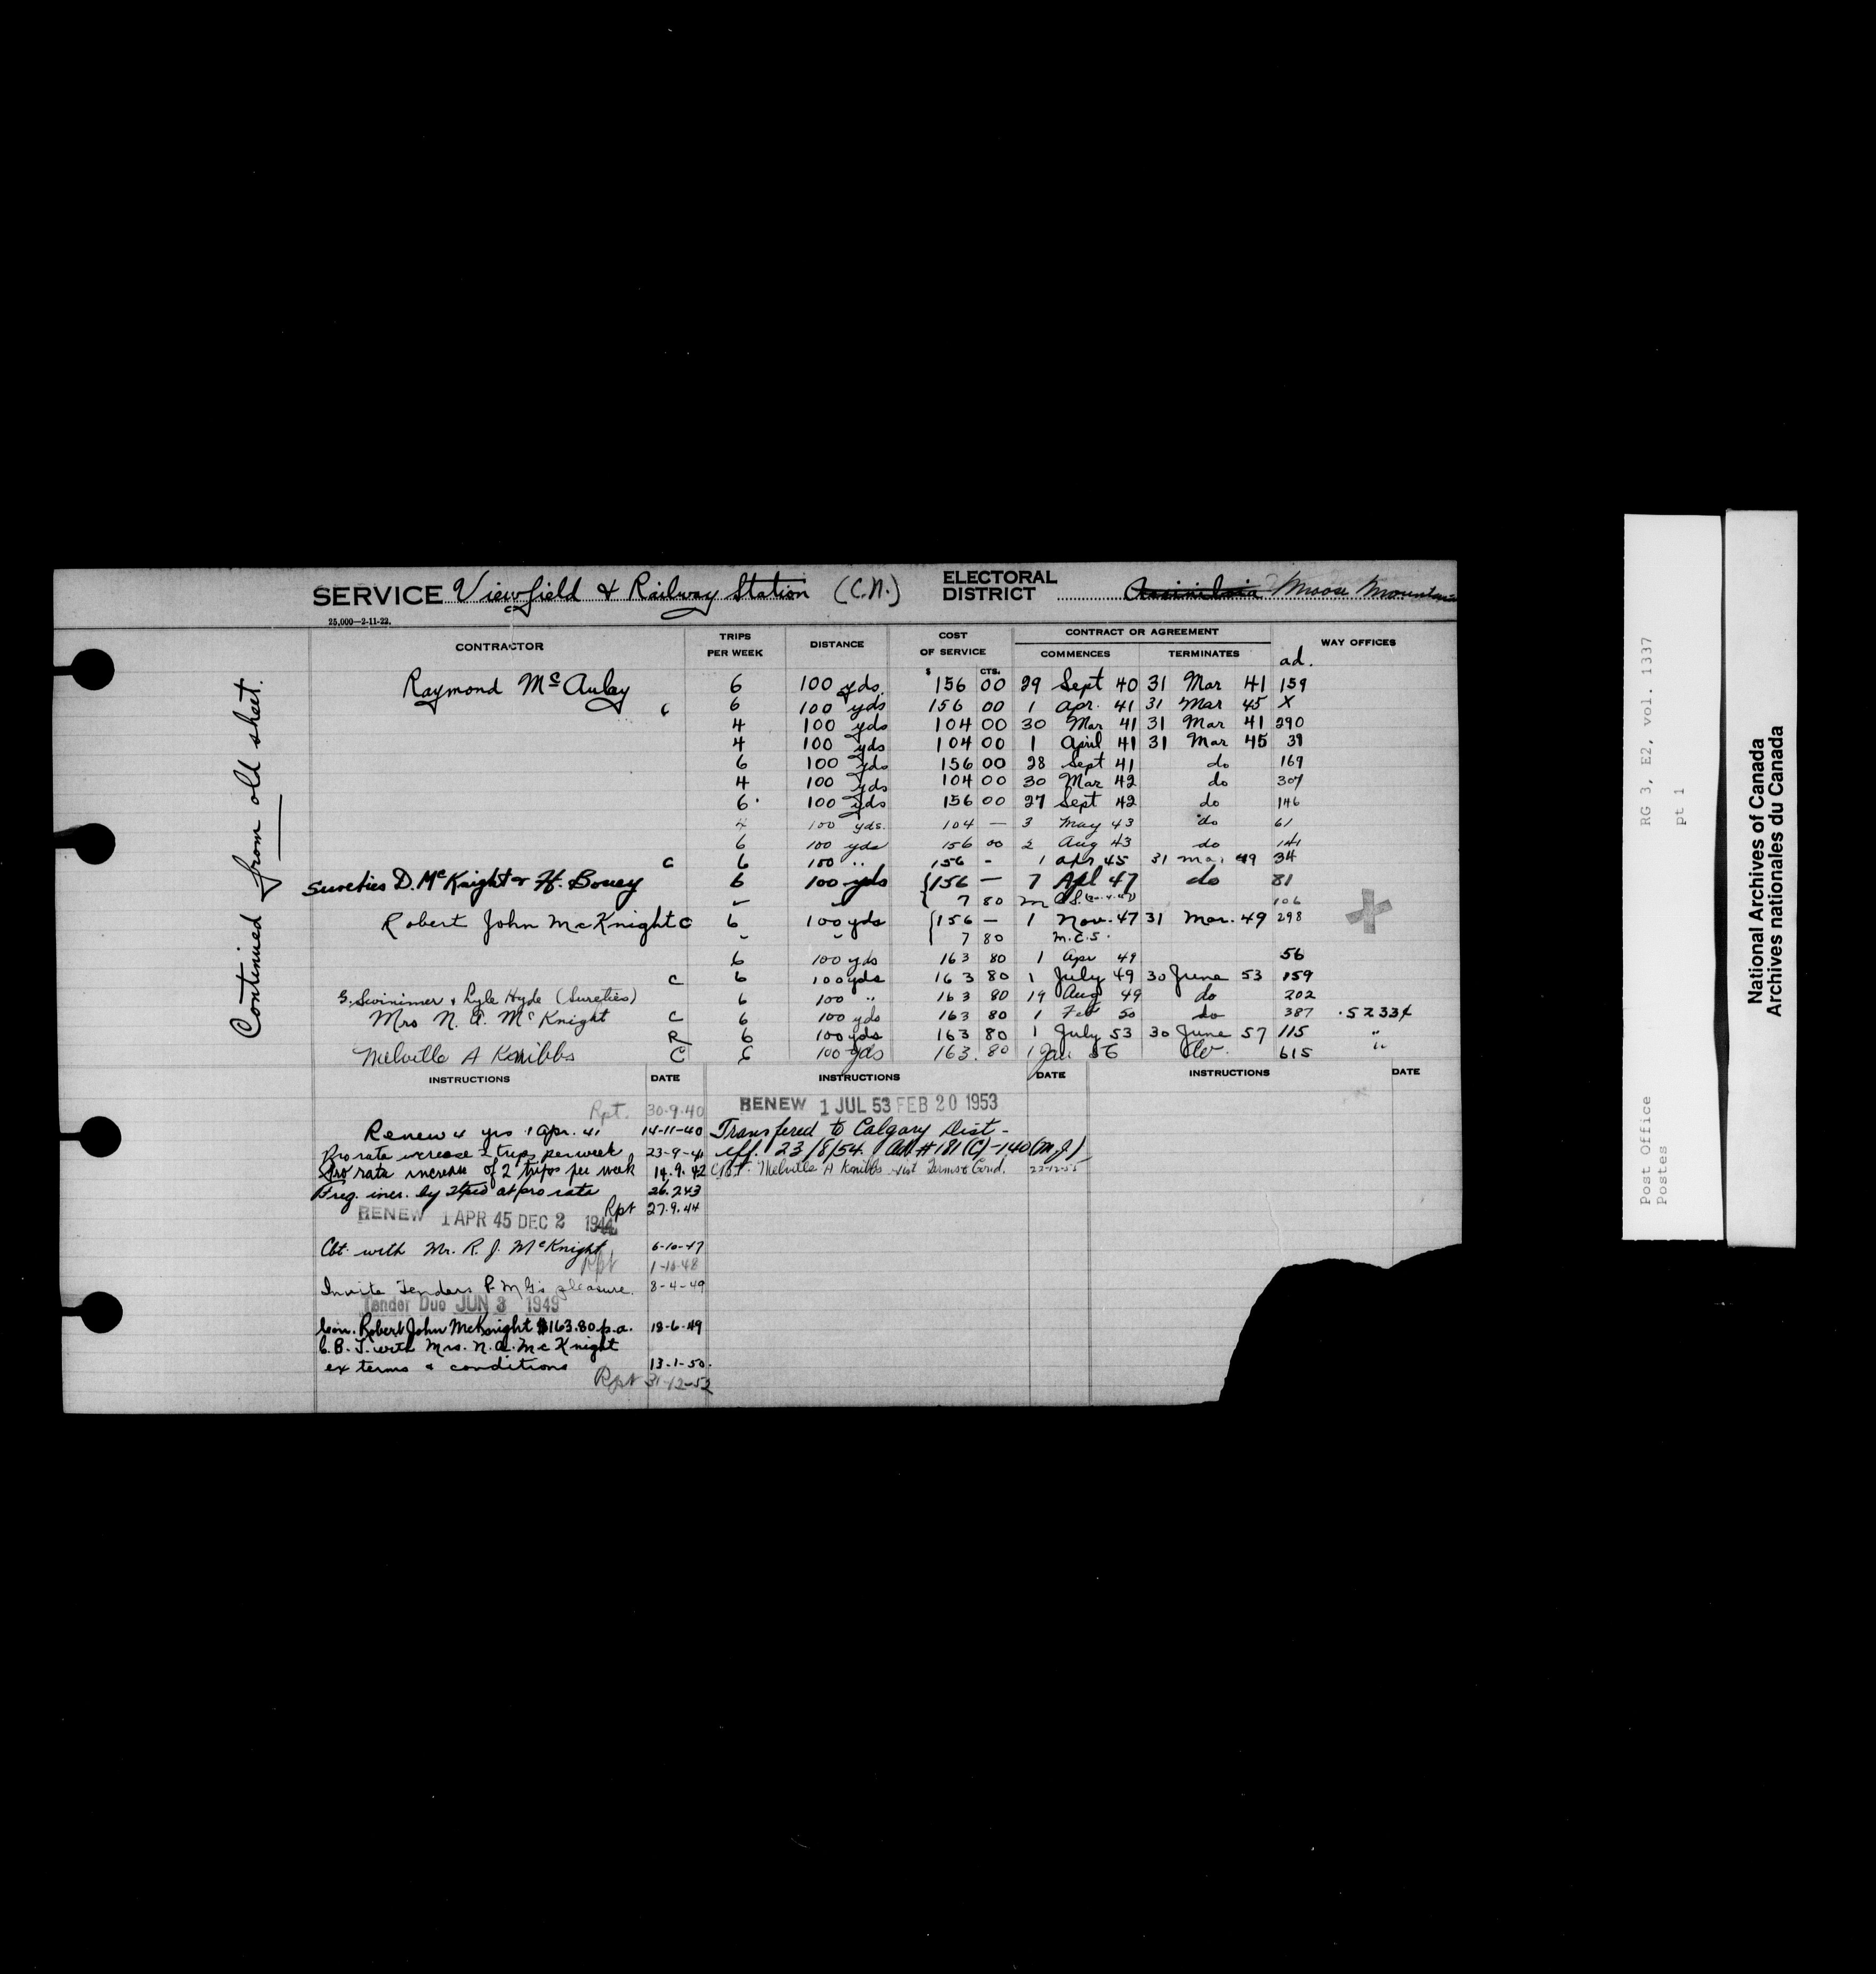 SERVICE Viewfield & Railway Station (C.N.) ELECTORAL DISTRICT Assiniboia Moose Mountain
25,000—2-11-22.
Continued from old sheet.
CONTRACTOR TRIPS PER WEEK DISTANCE COST OF SERVICE CONTRACT OR AGREEMENT WAY OFFICES
COMMENCES TERMINATES ad.
$ CTS.
Raymond McAulay 6 100 yds. 156 00 29 Sept 40 31 Mar 41 159
C 6 100 yds 156 00 1 Apr. 41 31 Mar 45 X
4 100 yds 104 00 30 Mar 41 31 Mar 41 290
4 100 yds 104 00 1 April 41 31 Mar 45 39
6 100 yds 156 00 28 Sept 41 do 169
4 100 yds 104 00 30 Mar 42 do 307
6 100 yds 156 00 27 Sept 42 do 146
4 100 yds. 104 — 3 May 43 do 61
6 100 yds 156 00 2 Aug 43 do 141
C 6 100 " 156 - 1 Apr 45 31 Mar 49 34
Sureties D. McKnight & H. Bouey 6 100 yds {156 — 7 Apl 47 do 81
7 80 M.C.S. 106
Robert John McKnight C 6 100 yds {156 — 1 Nov. 47 31 Mar. 49 298
7 80 M.C.S.
6 100 yds 163 80 1 Apr 49 56
C 6 100 yds 163 80 1 July 49 30 June 53 159
G. Swinimer & Lyle Hyde (Sureties) 6 100 " 163 80 19 Aug 49 do 202
Mrs N. A. McKnight C 6 100 yds 163 80 1 Feb 50 do 387 .52334
R 6 100 yds 163 80 1 July 53 30 June 57 115 "
Melville A Knibbs C 6 100 yds 163.80 1 Jan 56 do. 615 "
INSTRUCTIONS DATE INSTRUCTIONS DATE INSTRUCTIONS DATE
Rpt. 30-9-40
Renew 4 yrs 1 Apr. 41 14-11-40
Pro rata increase 2 trips per week 23-9-41
Pro rata increase of 2 trips per week 14.9.42
Freq. incr. by 2 trips at pro rata 26.7.43
Rpt 27.9.44
RENEW 1 APR 45 DEC 2 1944
Cbt. with Mr. R. J. McKnight 6-10-47
Rpt 1-10-48
Invite Tenders P.M.G's pleasure. 8-4-49
Tender Due JUN 3 1949
Con. Robert John McKnight $163.80 p.a. 18-6-49
C.B.T. with Mrs. N. A. McKnight
ex terms & conditions 13-1-50.
Rpt 31-12-52
RENEW 1 JUL 53 FEB 20 1953
Transfered to Calgary Dist -
eff. 23/8/54. Ad. # 181(C)-140 (M.J.)
CBT. Melville A Knibbs exist Terms & Cond. 22-12-55
RG 3, E2, vol. 1337
pt 1
Post Office
Postes
National Archives of Canada
Archives nationales du Canada